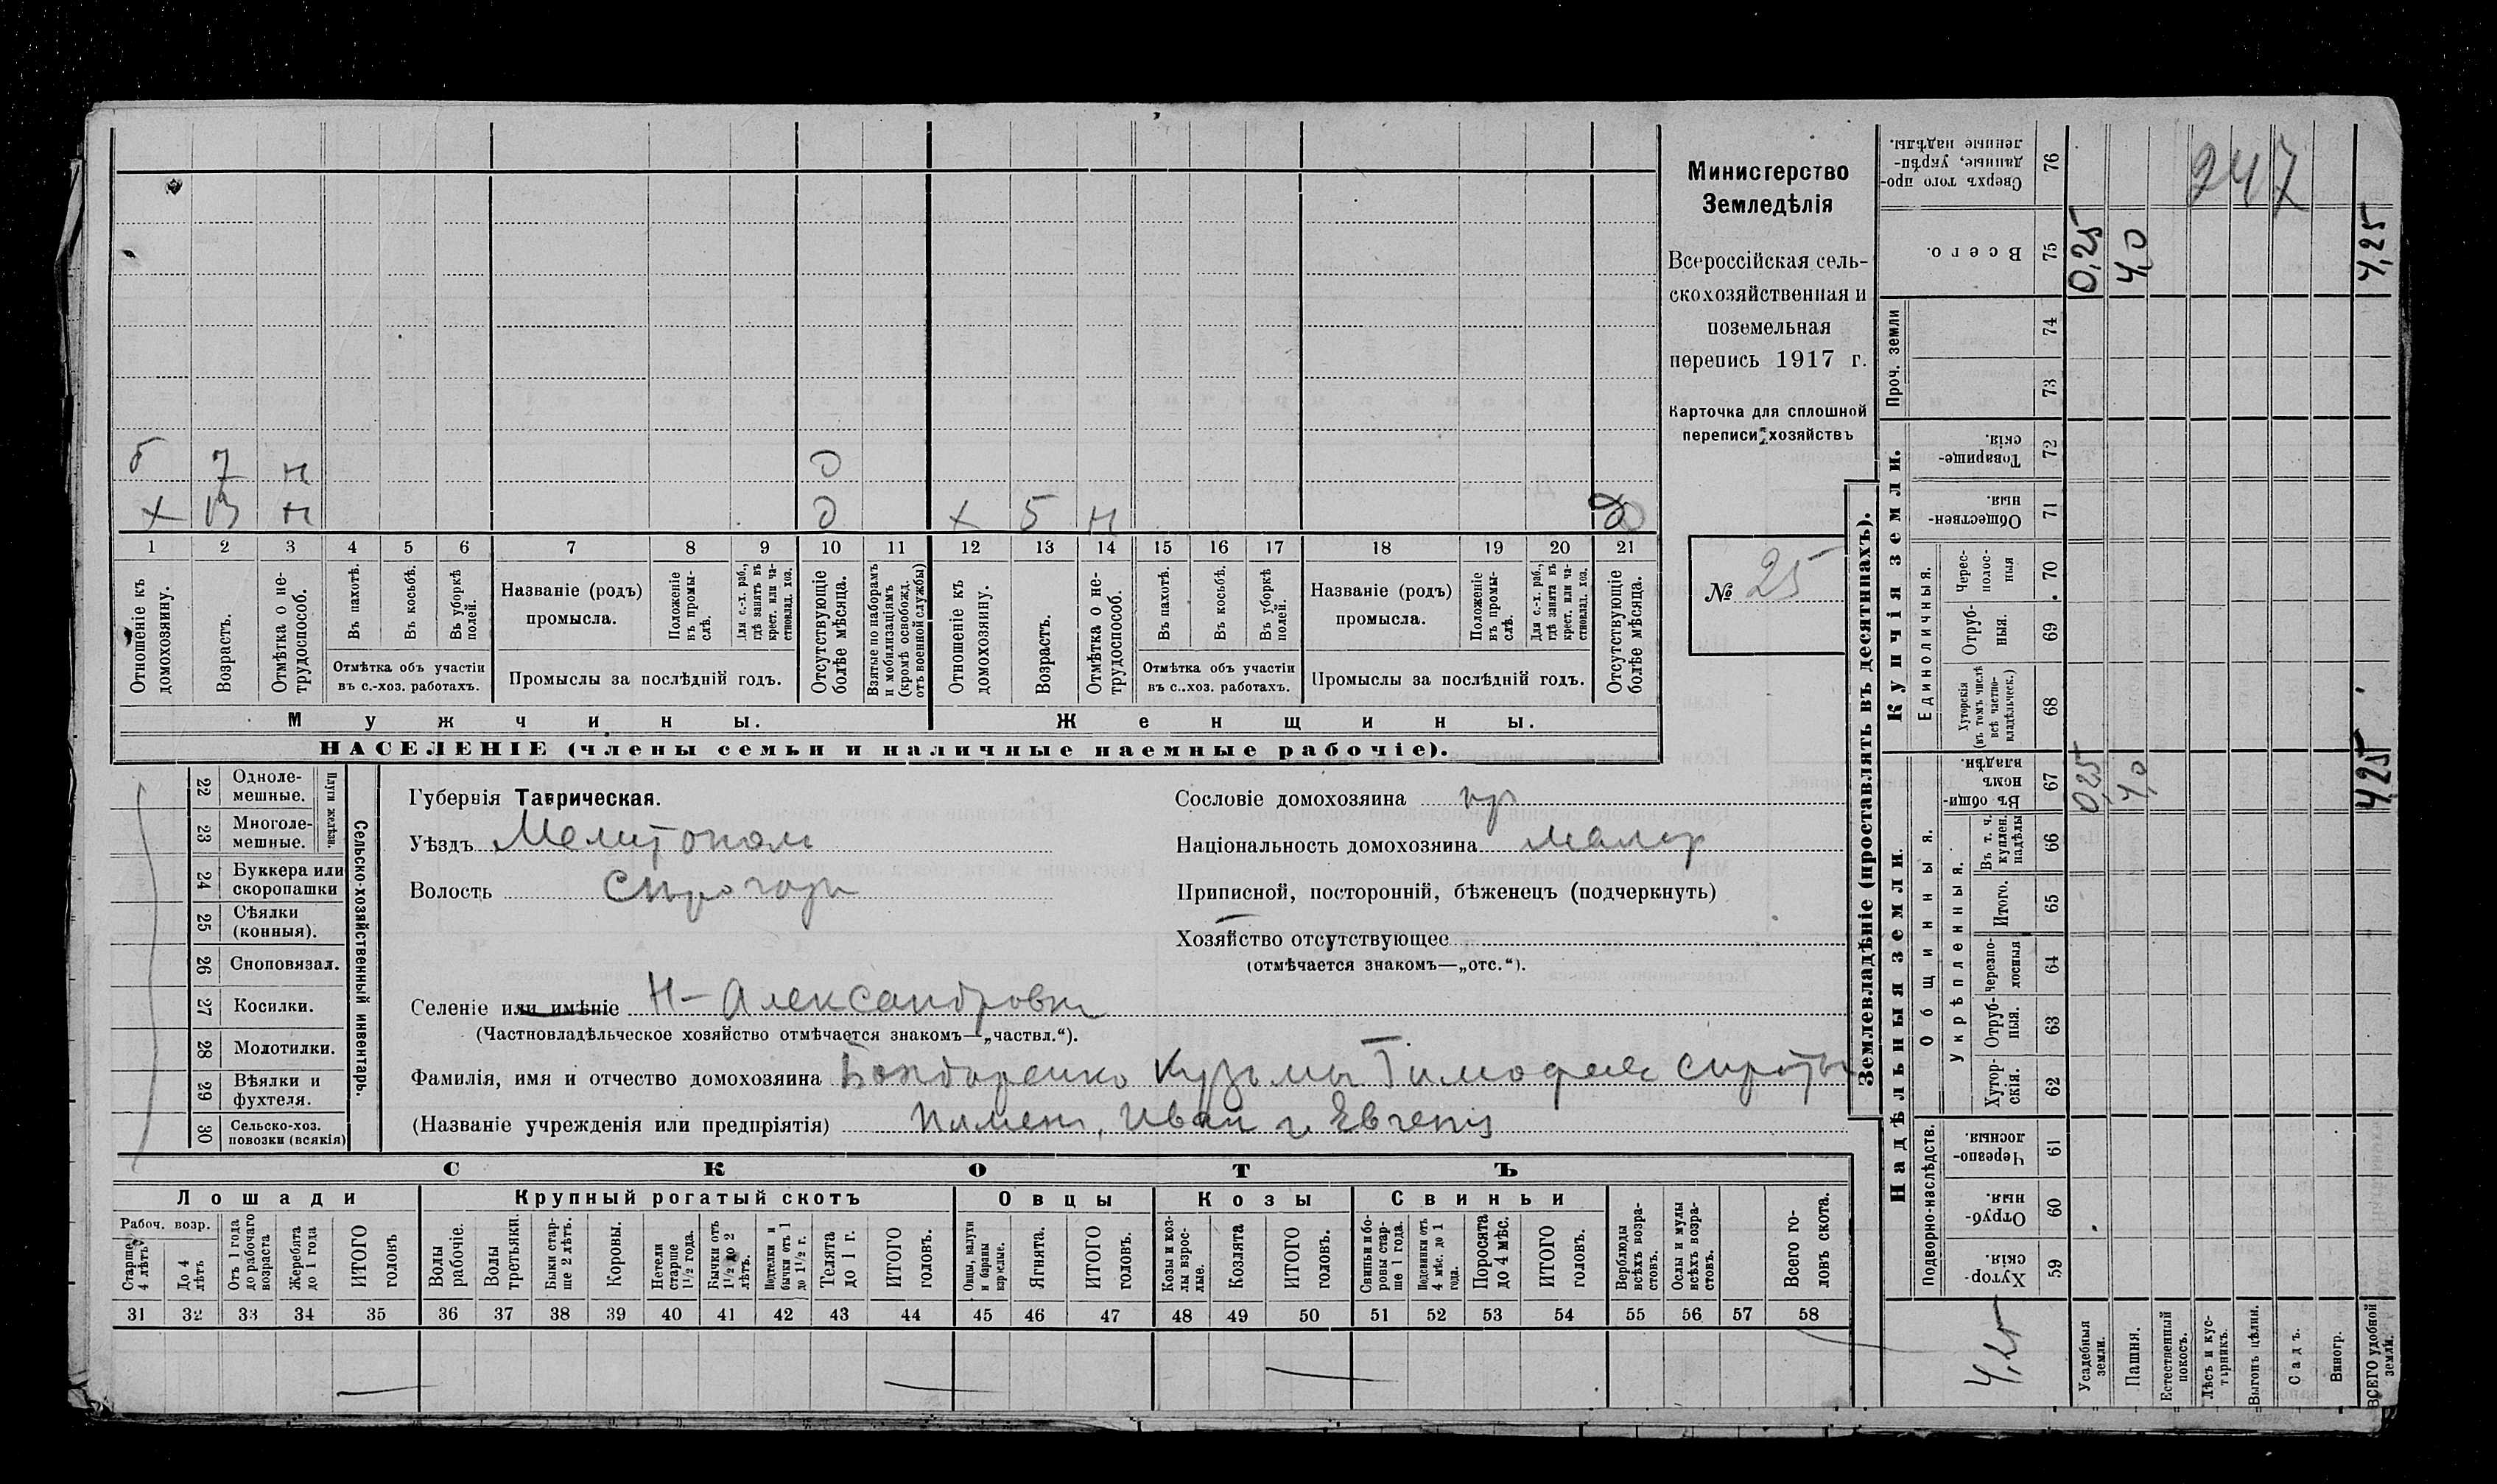 б 7 н 0
х 13 н 0 х 5 н
1 2 3 4 5 6 7 8 9 10 11 12 13 14 15 16 17 18 19 20 21
Отношеніе къ домохозяину.
Возрастъ.
Отмѣтка о не-трудоспособ.
Въ пахотѣ.
Въ косьбѣ.
Въ уборкѣ полей.
Отмѣтка объ участіи
въ с.-хоз. работахъ.
Названіе (родъ)
промысла.
Положеніе въ промы-слѣ.
Для с.-х. раб., гдѣ занятъ въ крест. или ча-стновлад. хоз.
Промыслы за послѣдній годъ.
Отсутствующіе болѣе мѣсяца.
Взятые по наборамъ и мобилизаціямъ (кромѣ освобожд. отъ военной службы)
Отношеніе къ домохозяину.
Возрастъ.
Отмѣтка о не-трудоспособ.
Въ пахотѣ.
Въ косьбѣ.
Въ уборкѣ полей.
Отмѣтка объ участіи
въ с..хоз. работахъ.
Названіе (родъ)
промысла.
Положеніе въ промы-слѣ.
Для с.-х. раб., гдѣ занята въ крест. или ча-стновлад. хоз.
Промыслы за послѣдній годъ.
Отсутствующіе болѣе мѣсяца.
Мужчины.
Женщины.
НАСЕЛЕНІЕ (члены семьи и наличные наемные рабочіе).
Министерство
Земледѣлія
Всероссійская сель-
скохозяйственная и
поземельная
перепись 1917 г.
Карточка для сплошной
переписи хозяйствъ
№ 25
22 Одноле-мешные.
23 Многоле-мешные.
Плуги желѣзн.
24 Буккера или скоропашки
25 Сѣялки (конныя).
26 Сноповязал.
27 Косилки.
28 Молотилки.
29 Вѣялки и фухтеля.
30 Сельско-хоз. повозки (всякія)
Сельско-хозяйственный инвентарь.
Губернія Таврическая.
Уѣздъ Мелитопол
Волость Сирогоз
Селеніе или имѣніе Н-Александровка
(Частновладѣльческое хозяйство отмѣчается знакомъ—„частвл.“).
Фамилія, имя и отчество домохозяина Бондаренко Кузьмы Тимофеев сироты
(Названіе учрежденія или предпріятія) Пимен, Иван и Евгения
Сословіе домохозяина кр
Національность домохозяина малор
Приписной, посторонній, бѣженецъ (подчеркнуть)
Хозяйство отсутствующее
(отмѣчается знакомъ—„отс.“).
СКОТЪ
Лошади
Крупный рогатый скотъ
Овцы
Козы
Свиньи
Рабоч. возр.
Старше 4 лѣтъ
До 4 лѣтъ
Отъ 1 года до рабочаго возраста
Жеребята до 1 года
ИТОГО головъ
Волы рабочіе.
Волы третьяки.
Быки стар-ше 2 лѣтъ.
Коровы.
Нетели старше 1½ года.
Бычки отъ 1½ до 2 лѣтъ.
Подтелки и бычки отъ 1 до 1½ г.
Телята до 1 г.
ИТОГО головъ.
Овцы, валухи и бараны взрослые.
Ягнята.
ИТОГО головъ.
Козы и коз-лы взрос-лые.
Козлята
ИТОГО головъ.
Свиньи и бо-ровы стар-ше 1 года.
Подсвинки отъ 4 мѣс. до 1 года.
Поросята до 4 мѣс.
ИТОГО головъ.
Верблюды всѣхъ возра-стовъ.
Ослы и мулы всѣхъ возра-стовъ.
Всего го-ловъ скота.
31 32 33 34 35 36 37 38 39 40 41 42 43 44 45 46 47 48 49 50 51 52 53 54 55 56 57 58
Землевладѣніе (проставлять въ десятинахъ).
Надѣльныя земли.
Купчія земли.
Проч. земли
Подворно-наслѣдств.
Общинныя.
Укрѣпленныя.
Единоличныя.
Сверхъ того про-данные, укрѣп-ленные надѣлы. 76 247
Всего. 75 0,25 4,0 4,25
74
73
Товарище-скія. 72
Обществен-ныя. 71
Черес-полос-ныя 70
Отруб-ныя. 69
Хуторскія (въ томъ числѣ всѣ частно-владѣльческ.) 68
Въ общин-номъ владѣн. 67 0,25 4,0 4,25
Въ т. ч. куплен. надѣлы 66
Итого. 65
Черезпо-лосныя 64
Отруб-ныя. 63
Хутор-скія. 62
Черезпо-лосныя. 61
Отруб-ныя. 60
Хутор-скія. 59
4,25
Усадебныя земли.
Пашня.
Естественный покосъ.
Лѣсъ и кус-тарникъ.
Выгонъ цѣлин.
Садъ.
Виногр.
ВСЕГО удобной земли.